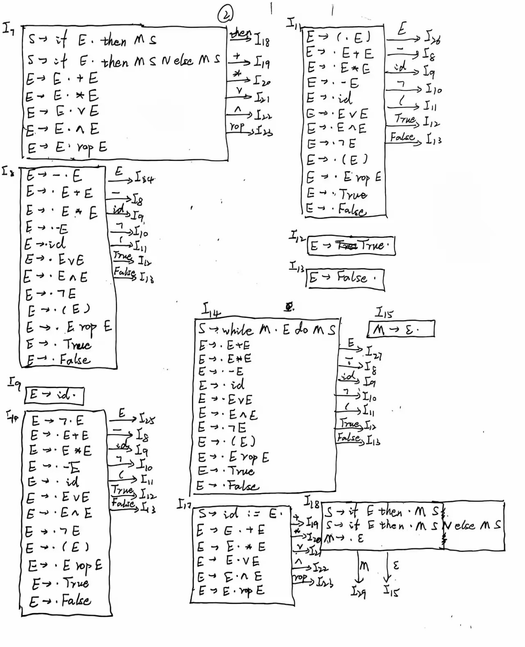 ②
I7
S → if E . then M S
S → if E . then M S N else M S
E → E . + E
E → E . * E
E → E . ∨ E
E → E . ∧ E
E → E . rop E
then I18
+ I19
* I20
∨ I21
∧ I22
rop I23
I11
E → ( . E )
E → . E + E
E → . E * E
E → . - E
E → . id
E → . E ∨ E
E → . E ∧ E
E → . ¬ E
E → . ( E )
E → . E rop E
E → . True
E → . False
E I26
- I8
id I9
¬ I10
( I11
True I12
False I13
I8
E → - . E
E → . E + E
E → . E * E
E → . - E
E → . id
E → . E ∨ E
E → . E ∧ E
E → . ¬ E
E → . ( E )
E → . E rop E
E → . True
E → . False
E I24
- I8
id I9
¬ I10
( I11
True I12
False I13
I12
E → True .
I13
E → False .
I14
S → while M . E do M S
E → . E + E
E → . E * E
E → . - E
E → . id
E → . E ∨ E
E → . E ∧ E
E → . ¬ E
E → . ( E )
E → . E rop E
E → . True
E → . False
E I27
- I8
id I9
¬ I10
( I11
True I12
False I13
I15
M → ε .
I9
E → id .
I10
E → ¬ . E
E → . E + E
E → . E * E
E → . - E
E → . id
E → . E ∨ E
E → . E ∧ E
E → . ¬ E
E → . ( E )
E → . E rop E
E → . True
E → . False
E I25
- I8
id I9
¬ I10
( I11
True I12
False I13
I17
S → id := E .
E → E . + E
E → E . * E
E → E . ∨ E
E → E . ∧ E
E → E . rop E
+ I19
* I20
∨ I21
∧ I22
rop I23
I18
S → if E then . M S
S → if E then . M S N else M S
M → . ε
M ε
I29 I15